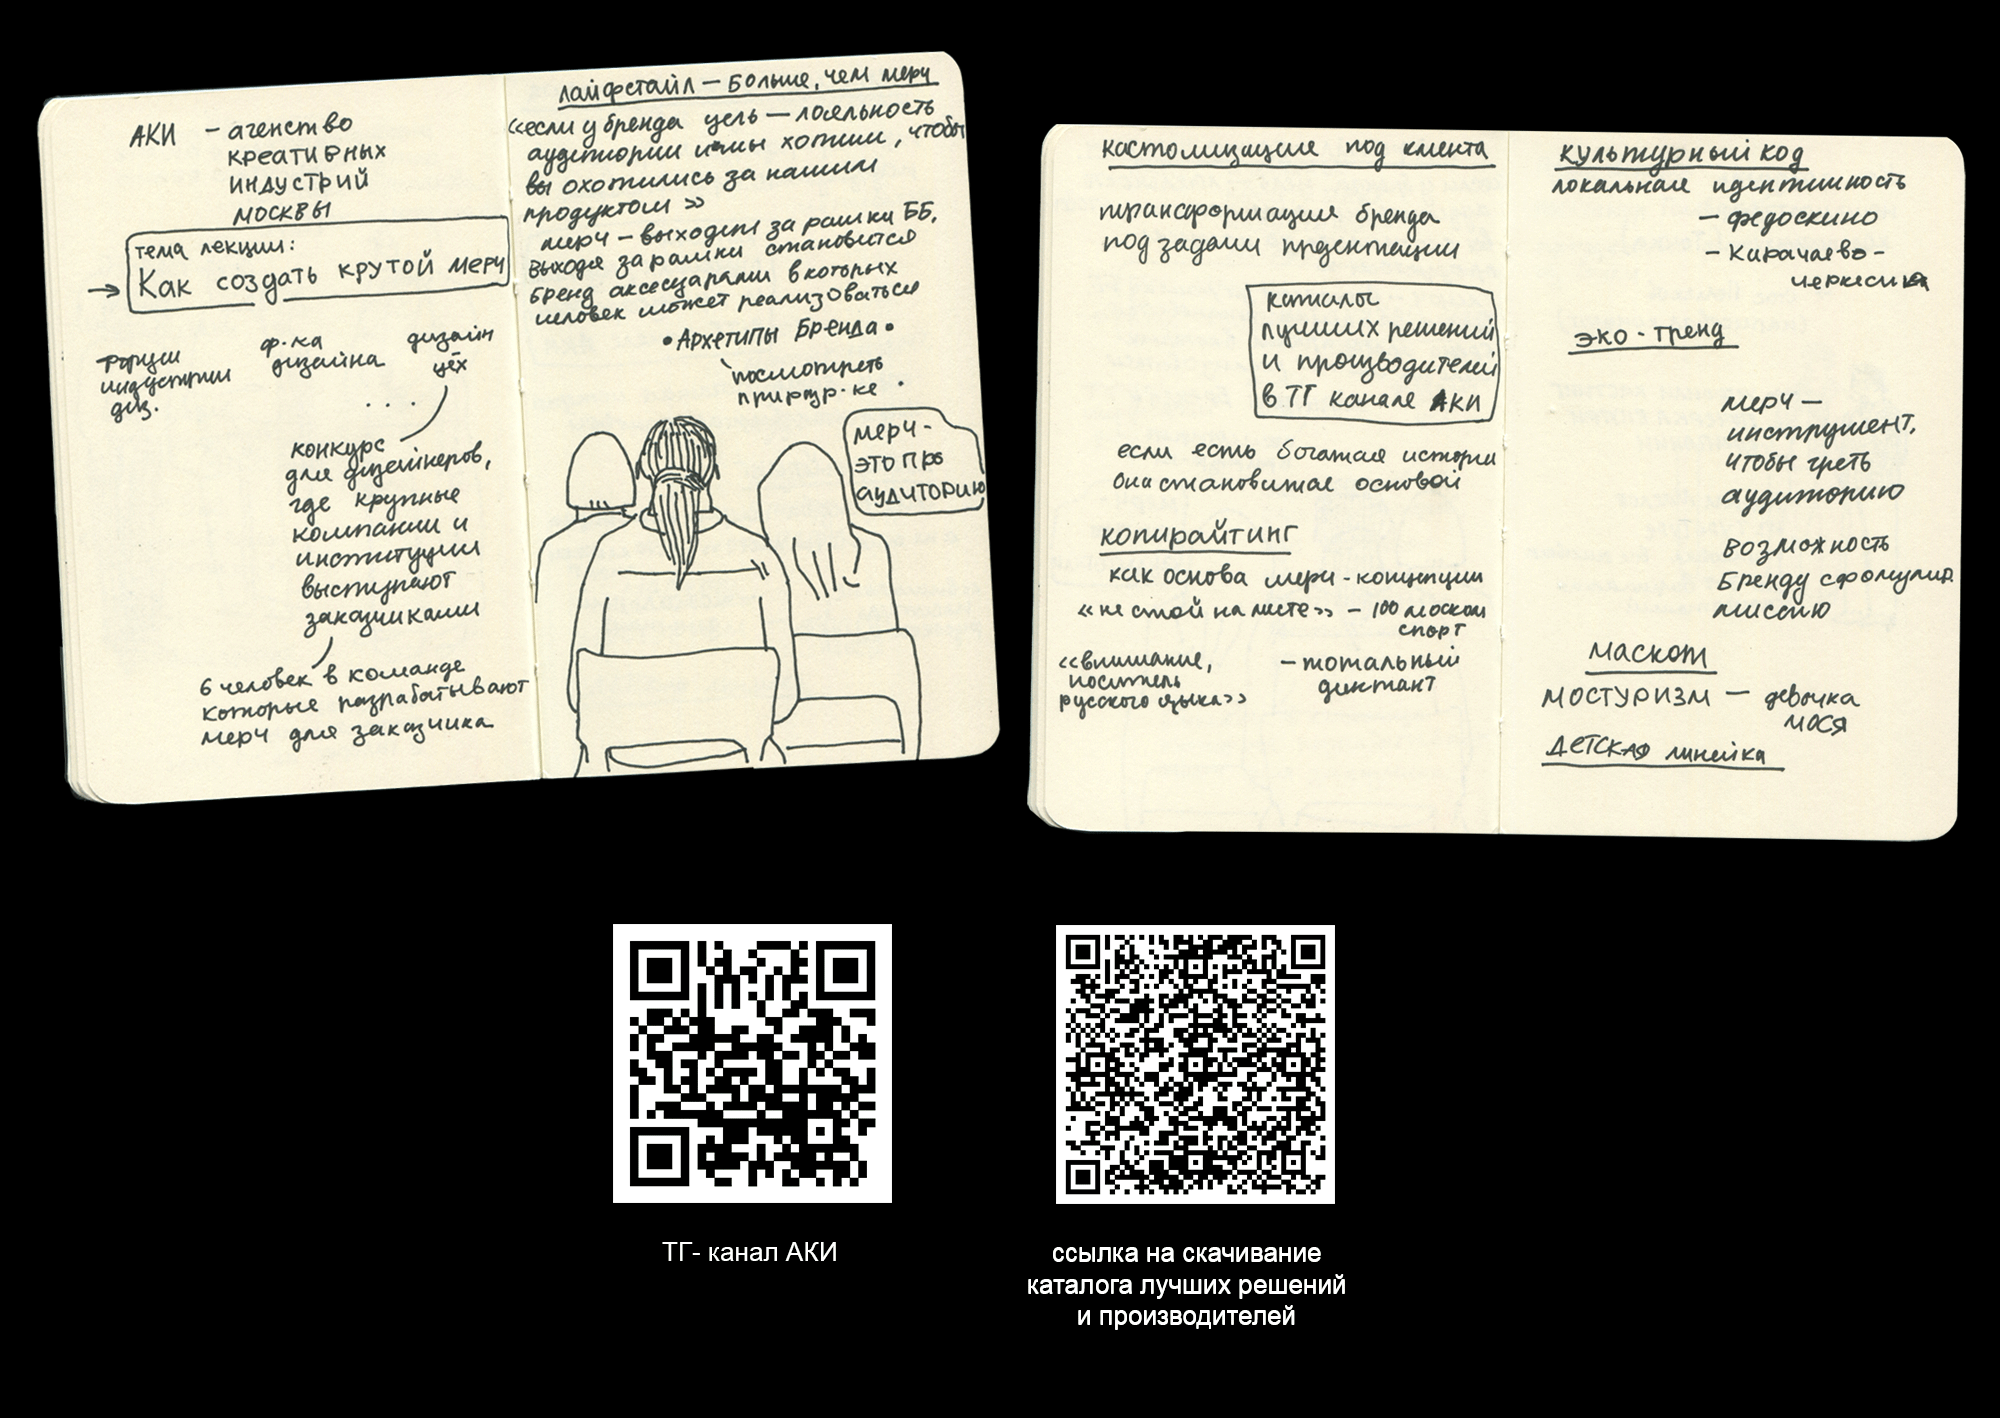 АКИ - агенство
креативных
индустрий
москвы
тема лекции:
→ Как создать крутой мерч
индустрии
диз.
ф-ка
дизайна
дизайн
цех
...
конкурс
для дизайнеров,
где крупные
компании и
институции
выступают
заказчиками
6 человек в команде
которые разрабатывают
мерч для заказчика
лайфстайл — больше, чем мерч
«если у бренда цель — лояльность
аудитории и мы хотим, чтобы
вы охотились за нашим
продуктом»
мерч - выходит за рамки ББ,
выходя за рамки становится
бренд аксесуарами в которых
человек может реализоваться
• Архетипы Бренда •
посмотреть
мерч -
это про
аудиторию
кастомизация под клиента
трансформация бренда
под задачи
каталог
лучших решений
и производителей
в ТГ канале АКИ
если есть богатая история
она становится основой
копирайтинг
как основа мерч-концепции
«не стой на месте» - 100
спорт
«внимание,
носитель
русского языка»
- тотальный
диктант
культурный код
локальная идентичность
- федоскино
- Карачаево-
черкесия
эко-тренд
мерч —
инструмент,
чтобы греть
аудиторию
возможность
бренду
миссию
маскот
мостуризм — девочка
мося
детская линейка
ТГ- канал АКИ
ссылка на скачивание
каталога лучших решений
и производителей